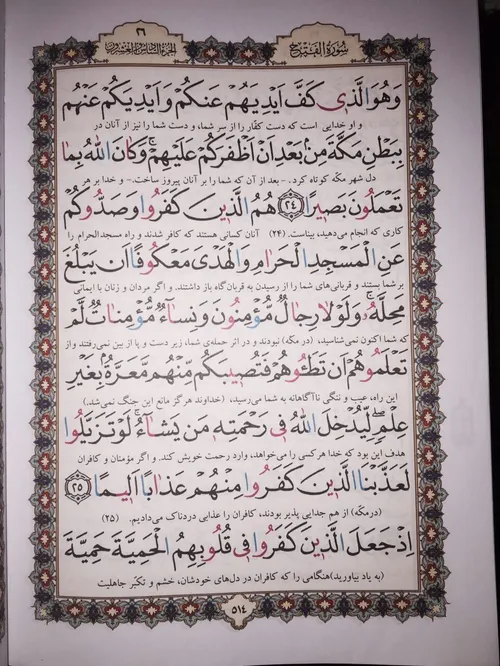 الجزء السادس والعشرون
٦
سورة الفتح
وَهُوَ الَّذِی كَفَّ اَیْدِیَهُمْ عَنْكُمْ وَ اَیْدِیَكُمْ عَنْهُمْ
و او خدایی است که دست کفّار را از سر شما، و دست شما را نیز از آنان در
بِبَطْنِ مَكَّةَ مِنْ بَعْدِ اَنْ اَظْفَرَكُمْ عَلَیْهِمْ ۚ وَكَانَ اللّٰهُ بِمَا
دل شهر مکّه کوتاه کرد. - بعد از آن که شما را بر آنان پیروز ساخت. - و خدا بر هر
تَعْمَلُونَ بَصِیرًا ﴿٢٤﴾ هُمُ الَّذِینَ كَفَرُوا وَ صَدُّوكُمْ
کاری که انجام می‌دهید، بیناست. (۲۴) آنان کسانی هستند که کافر شدند و راه مسجدالحرام را
عَنِ الْمَسْجِدِ الْحَرَامِ وَالْهَدْیَ مَعْكُوفًا اَنْ یَبْلُغَ
بر شما بستند و قربانی‌های شما را از رسیدن به قربان‌گاه باز داشتند. و اگر مردان و زنان با ایمانی
مَحِلَّهُ ۚ وَلَوْلَا رِجَالٌ مُؤْمِنُونَ وَ نِسَاءٌ مُؤْمِنَاتٌ لَمْ
که شما اکنون نمی‌شناسید، (در مکّه) نبودند و در اثر حمله‌ی شما، زیر دست و پا از بین نمی‌رفتند و از
تَعْلَمُوهُمْ اَنْ تَطَئُوهُمْ فَتُصِیبَكُمْ مِنْهُمْ مَعَرَّةٌ بِغَیْرِ
این راه، عیب و ننگی ناآگاهانه به شما می‌رسید، (خداوند هرگز مانع این جنگ نمی‌شد.)
عِلْمٍ ۖ لِیُدْخِلَ اللّٰهُ فِی رَحْمَتِهِ مَنْ یَشَاءُ ۚ لَوْ تَزَیَّلُوا
هدف این بود که خدا هرکسی را می‌خواهد، وارد رحمت خویش کند. و اگر مؤمنان و کافران
لَعَذَّبْنَا الَّذِینَ كَفَرُوا مِنْهُمْ عَذَابًا اَلِیمًا ﴿٢٥﴾
(درمکه) از هم جدایی پذیر بودند، کافران را عذابی دردناک می‌دادیم. (۲۵)
اِذْ جَعَلَ الَّذِینَ كَفَرُوا فِی قُلُوبِهِمُ الْحَمِیَّةَ حَمِیَّةَ
(به یاد بیاورید)هنگامی را که کافران در دل‌های خودشان، خشم و تکبّر جاهلیت
٥١٤